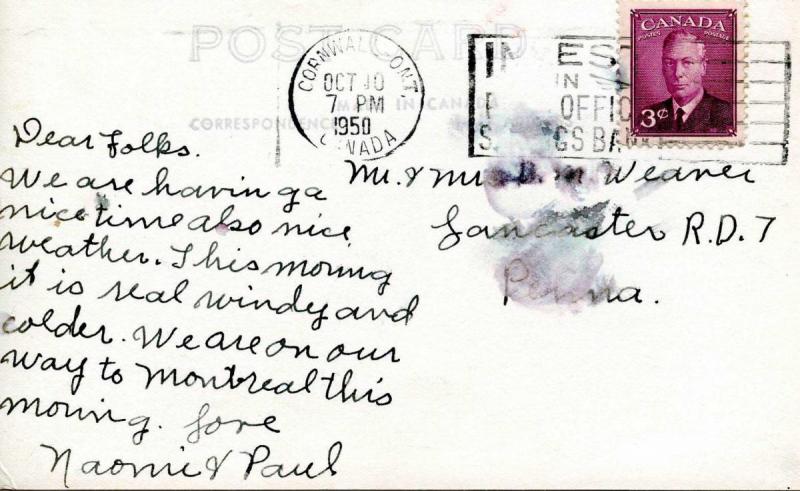 POST CARD
CORNWALL, ONT.
OCT 10
7 PM
1950
CANADA
IN
OFFICE
BANK
CANADA
POSTES POSTAGE
3¢
MADE IN CANADA
CORRESPONDENCE
Dear folks.
We are having a
nice time also nice
weather. This moring
it is real windy and
colder. We are on our
way to Montreal this
moring. Love
Naomi & Paul
Mr. & Mrs. M Weaver
Lancaster R.D. 7
Penna.